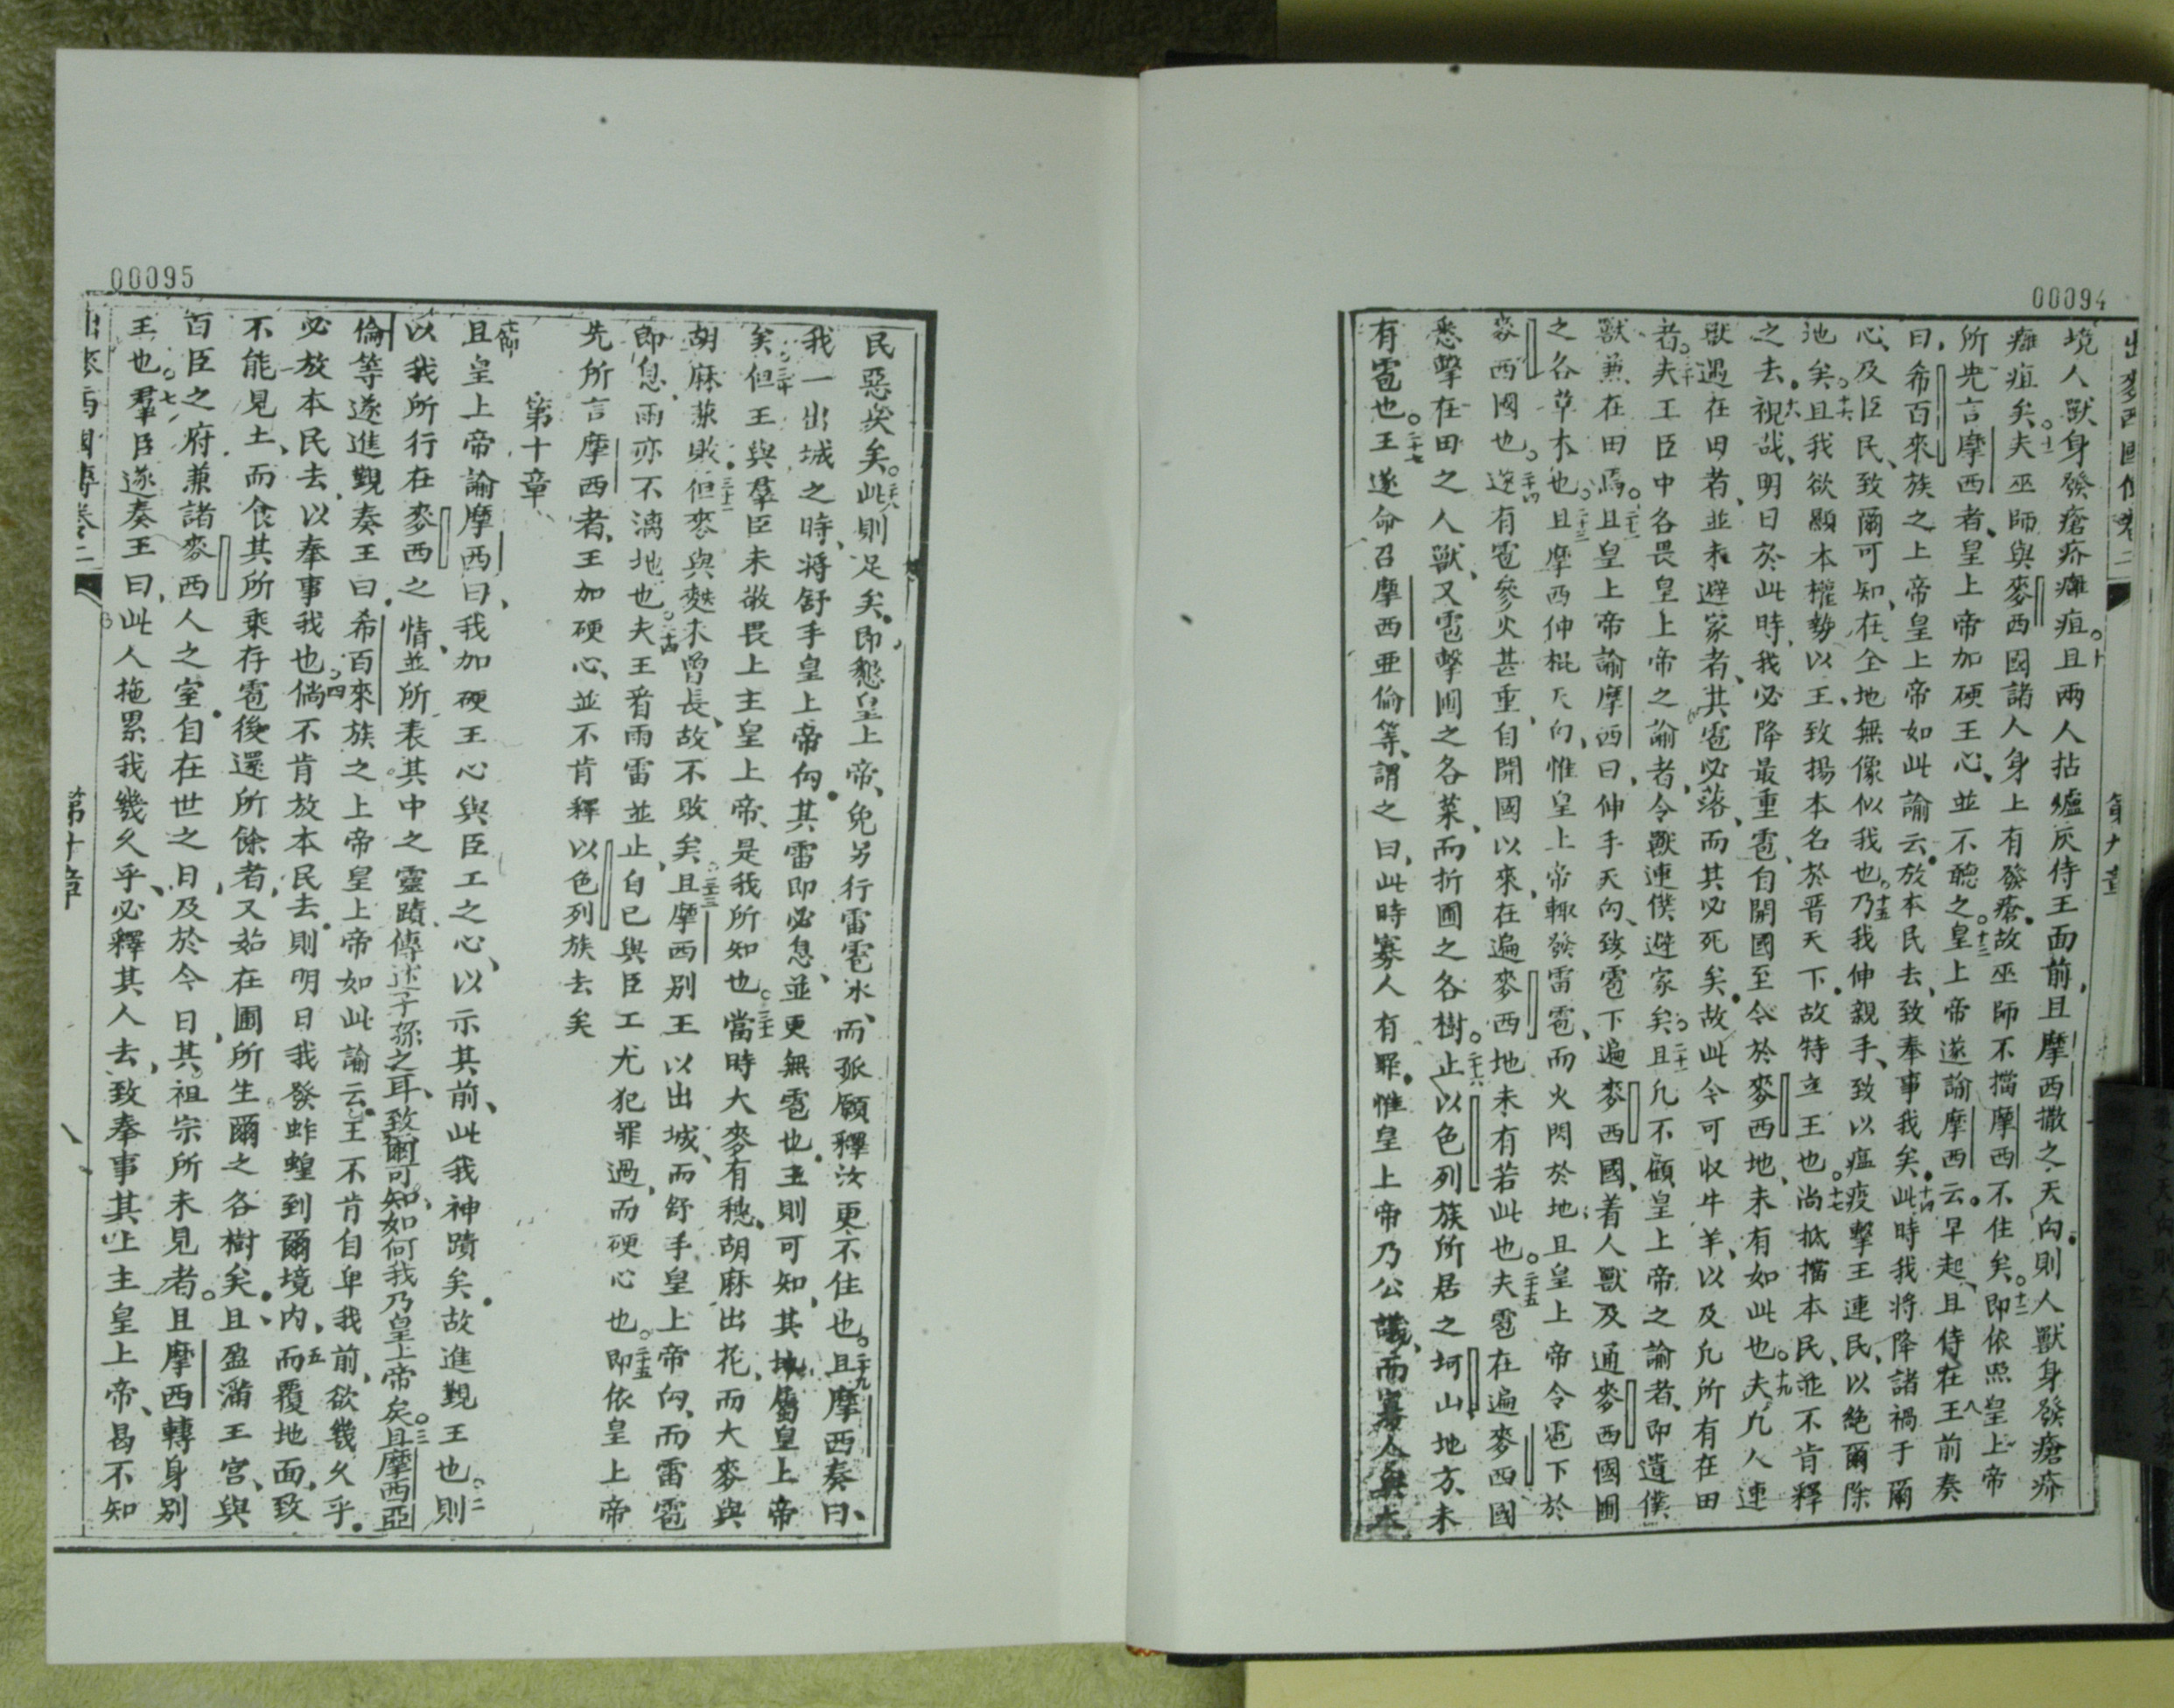 00094
出麥西國傳卷二 第九章
境人獸身發瘡疥癰疽○十且兩人拈爐灰侍王面前、且摩西撒之天向、則人獸身發瘡疥
癰疽矣○十一夫巫師與麥西國諸人身上有發瘡、故巫師不擋摩西不住矣○十二即依照皇上帝
所先言摩西者、皇上帝加硬王心、並不聽之○十三皇上帝遂諭摩西云、早起、且侍在王前奏
曰、希百來族之上帝皇上帝如此諭云、放本民去、致奉事我矣、十四此時我將降諸禍于爾
心、及臣民、致爾可知、在全地無像似我也○十五乃我伸親手、致以瘟疫擊王連民、以絕爾除
地矣○十六且我欲顯本權勢以王、致揚本名於普天下、故特立王也○十七尚抵擋本民、並不肯釋
之去、十八視哉、明日於此時、我必降最重雹、自開國至今於麥西地、未有如此也○十九夫凡人連
獸遇在田者、並未避家者、其雹必落、而其必死矣、故此今可收牛羊、以及凡所有在田
者○二十夫王臣中各畏皇上帝之諭者、令獸連僕避家矣○二十一且凡不顧皇上帝之諭者、即遺僕
獸兼在田焉○二十二且皇上帝諭摩西曰、伸手天向、致雹下遍麥西國、着人獸及通麥西國圃
之各草木也○二十三且摩西伸棍天向、惟皇上帝輙發雷雹、而火閃於地、且皇上帝令雹下於
麥西國也○二十四遂有雹參火甚重、自開國以來、在遍麥西地未有若此也○二十五夫雹在遍麥西國
悉擊在田之人獸、又雹擊圃之各菜、而折圃之各樹○二十六止以色列族所居之坷山地方、未
有雹也○二十七王遂命召摩西亜倫等、謂之曰、此時寡人有罪、惟皇上帝乃公義、而寡人與本
00095
民惡矣○二十八此則足矣、即懇皇上帝、免另行雷雹氷、而孤願釋汝更不住也○二十九且摩西奏曰、
我一出城之時、將舒手皇上帝向、其雷即必息、並更無雹也、王則可知、其地屬皇上帝
矣○三十但王與羣臣未敬畏上主皇上帝、是我所知也○三十一當時大麥有穗、胡麻出花、而大麥與
胡麻兼敗、三十二但麥與麰未曾長、故不敗矣○三十三且摩西別王以出城、而舒手皇上帝向、而雷雹
即息、雨亦不漓地也○三十四夫王看雨雷並止、自已與臣工尤犯罪過、而硬心也○三十五即依皇上帝
先所言摩西者、王加硬心、並不肯釋以色列族去矣
第十章
十一節且皇上帝諭摩西曰、我加硬王心、與臣工之心、以示其前、此我神蹟矣、故進觐王也○二則
以我所行在麥西之情、並所表其中之靈蹟、傳述子孫之耳、致爾可知、如何我乃皇上帝矣○三且摩西亞
倫等遂進觐奏王曰、希百來族之上帝皇上帝如此諭云、王不肯自卑我前、欲幾久乎、
必放本民去、以奉事我也○四倘不肯放本民去、則明日我發蚱蝗到爾境內、五而覆地面、致
不能見土、而食其所乘存雹後還所餘者、又茹在圃所生爾之各樹矣、且盈滿王宫、與
百臣之府、兼諸麥西人之室、自在世之日、及於今日、其祖宗所未見者○且摩西轉身別
王也○七羣臣遂奏王曰、此人拖累我幾久乎、必釋其人去、致奉事其上主皇上帝、曷不知
出麥西國傳卷二 第十章